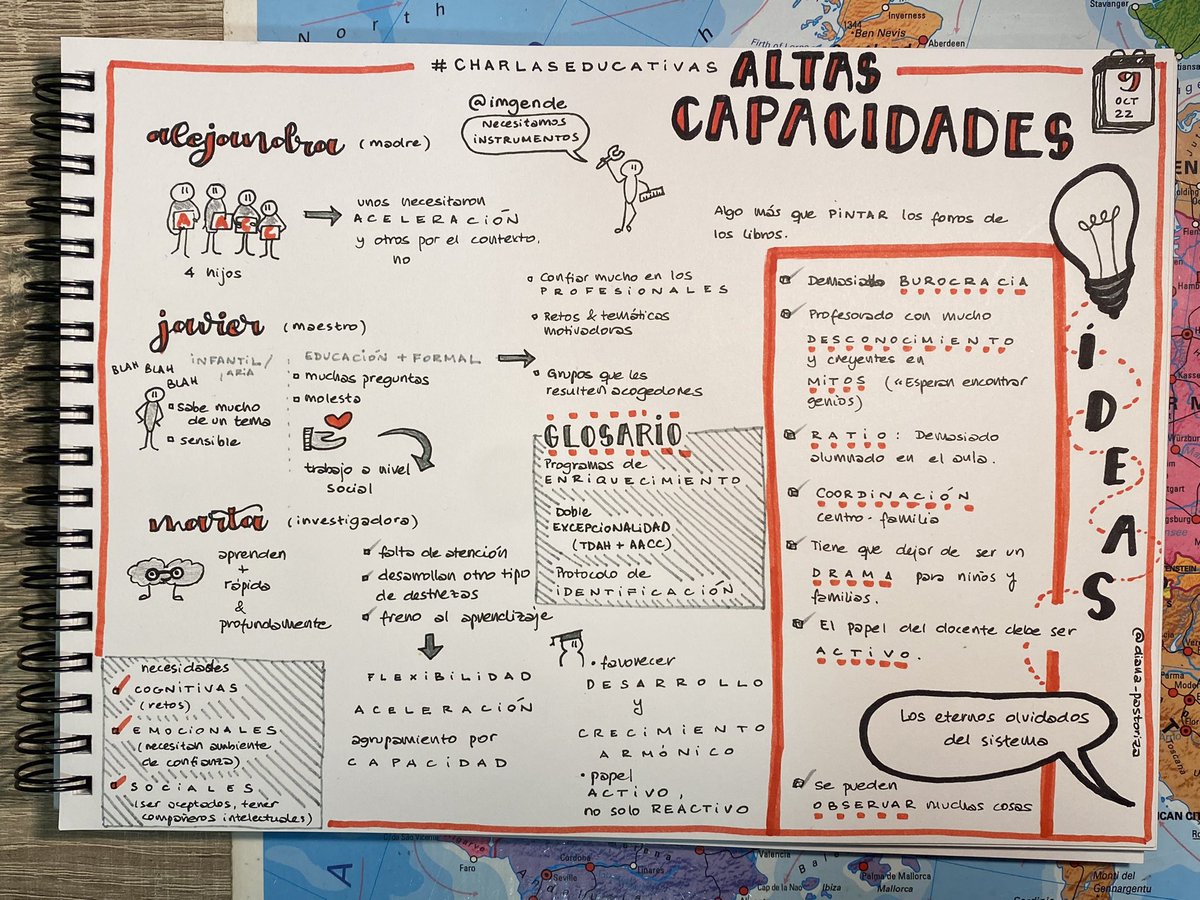 #CHARLASEDUCATIVAS
ALTAS
CAPACIDADES
9
OCT
22
@imgende
NECESITAMOS
INSTRUMENTOS
alejandra (madre)
A A C C
4 hijos
unos necesitaron
ACELERACIÓN
y otros por el contexto,
no
Algo más que PINTAR los forros de
los libros.
javier (maestro)
BLAH BLAH
BLAH
INFANTIL/
1ARIA
sabe mucho
de un tema
sensible
EDUCACIÓN + FORMAL
muchas preguntas
molesta
trabajo a nivel
social
Confiar mucho en los
PROFESIONALES
Retos & temáticas
motivadoras
Grupos que les
resulten acogedores
GLOSARIO
Programas de
ENRIQUECIMIENTO
Doble
EXCEPCIONALIDAD
(TDAH + AACC)
Protocolo de
IDENTIFICACIÓN
marta (investigadora)
aprenden
+
rápida
&
profundamente
falta de atención
desarrollan otro tipo
de destrezas
freno al aprendizaje
FLEXIBILIDAD
ACELERACIÓN
agrupamiento por
CAPACIDAD
necesidades
COGNITIVAS
(retos)
EMOCIONALES
(necesitan ambiente
de confianza)
SOCIALES
(ser aceptados, tener
compañeros intelectuales)
• favorecer
DESARROLLO
y
CRECIMIENTO
ARMÓNICO
• papel
ACTIVO,
no solo REACTIVO
IDEAS
Demasiada BUROCRACIA
Profesorado con mucho
DESCONOCIMIENTO
y creyentes en
MITOS («Esperan encontrar
genios)
RATIO: Demasiado
alumnado en el aula.
COORDINACIÓN
centro-familia
Tiene que dejar de ser un
DRAMA para niños y
familias.
El papel del docente debe ser
ACTIVO.
Los eternos olvidados
del sistema
Se pueden
OBSERVAR muchas cosas
@diana-pastoriza
North
Inverness
1344
Ben Nevis
Aberdeen
Stavanger
Faro
Seville
Cordoba
Linares
Valencia
Cap de la Nao
Ibiza
Palma de
Mallorca
Mallorca
Monti del
Gennargentu